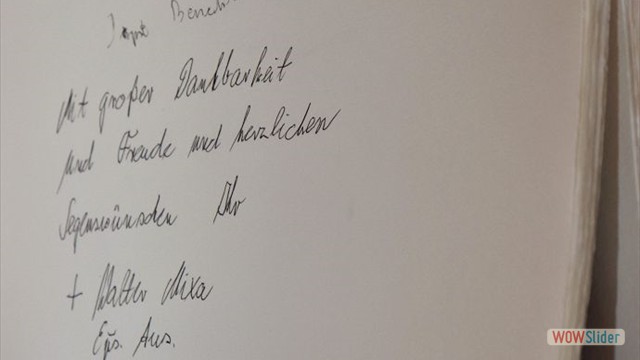 Mit großer Dankbarkeit
und Freude und herzlichen
Segenswünschen Ihr
+ Walter Mixa
Eps. Aus.
WOWSlider